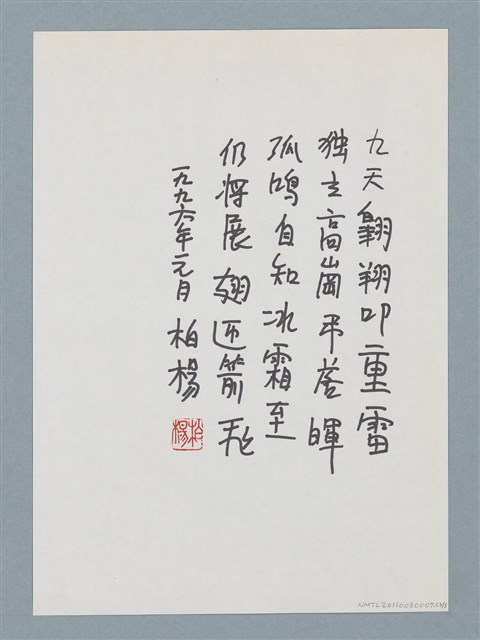 九天翱翔叩重雷
独立高崗弔落暉
孤鸣自知冰霜至
仍将展翅迎箭飛
一九九六年元月 柏楊
柏楊
NMTL20110030007